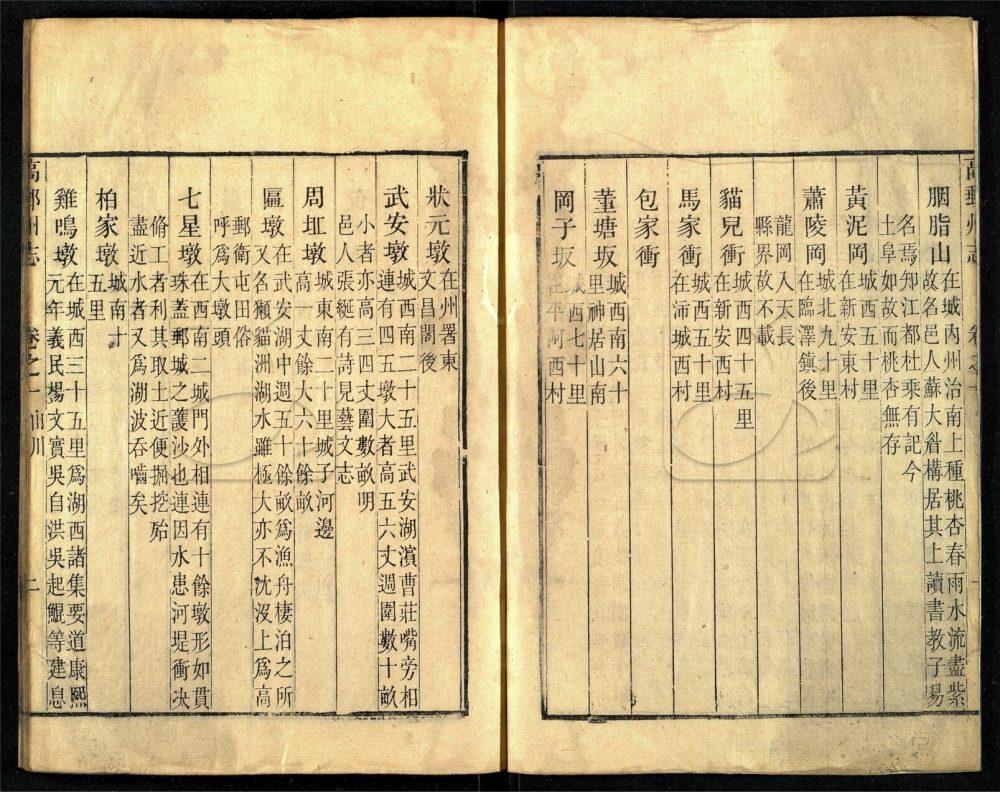 高郵州志 卷之一
胭脂山在城內州治南上種桃杏春雨水流盡紫
故名邑人蘇大眥構居其上讀書教子易
名焉知江都杜乘有記今
土阜如故而桃杏無存
黃泥岡城西五十里
在新安東村
蕭陵岡城北九十里
在臨澤鎮後
龍岡入天長
縣界故不載
貓兒衝城西四十五里
在新安西村
馬家衝城西五十里
在沛城西村
包家衝
董塘坂城西南六十
里神居山南
岡子坂城西七十里
在平河西村
狀元墩在州署東
文昌閣後
武安墩城西南二十五里武安湖濵曹莊嘴旁相
連有四五墩大者高五六丈週圍數十畝
小者亦高三四丈圍數畝明
邑人張綖有詩見藝文志
周坵墩城東南二十里城子河邊
高一丈餘大六十餘畝
區墩在武安湖中週五十餘畝爲漁舟棲泊之所
又名獺貓洲湖水雖極大亦不沈沒上爲高
郵衛屯田俗
呼爲大墩頭
七星墩在西南二城門外相連有十餘墩形如貫
珠蓋郵城之護沙也連因水患河堤衝决
脩工者利其取土近便掘挖殆
盡近水者又爲湖波吞嚙矣
柏家墩城南十
五里
雞鳴墩在城西三十五里爲湖西諸集要道康熙
元年義民楊文實吳自洪吳起鯤等建息
高郵州志 卷之一 山川 二